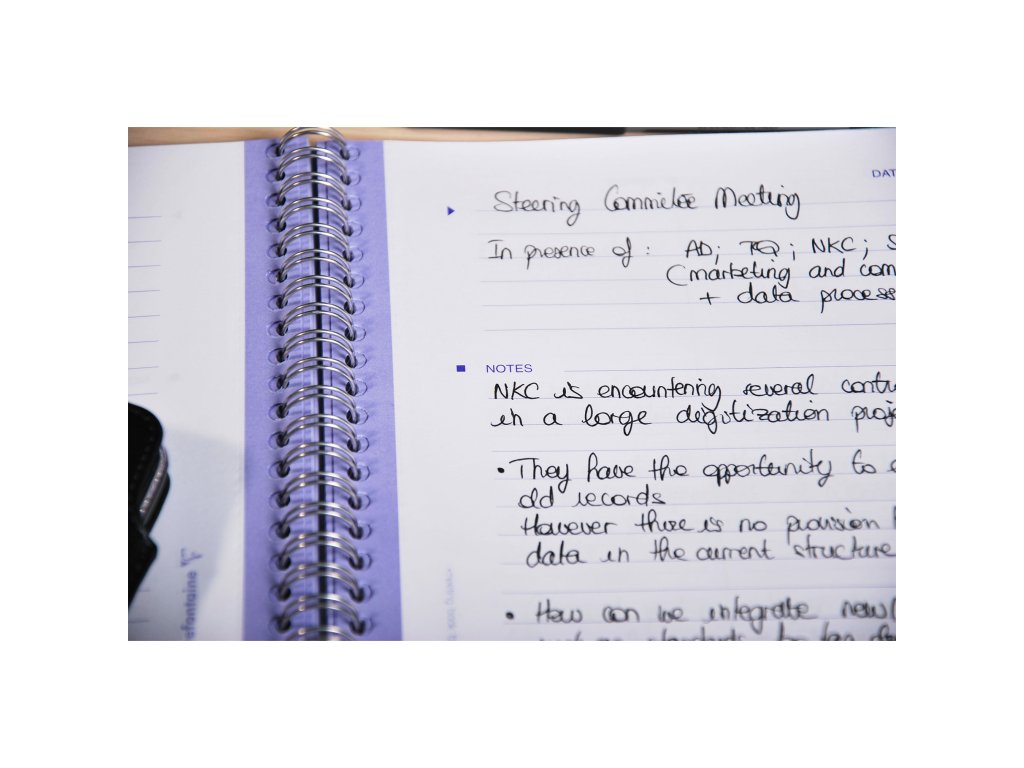 DAT
Steering Committee Meeting
In presence of : AD; TQ; NKC; S
(marketing and com
+ data process
NOTES
NKC is encountering several contr
in a large digitization proj
• They have the opportunity to
old records
However there is no provision
data in the current structure
• How can we integrate new
standards to
efontaine